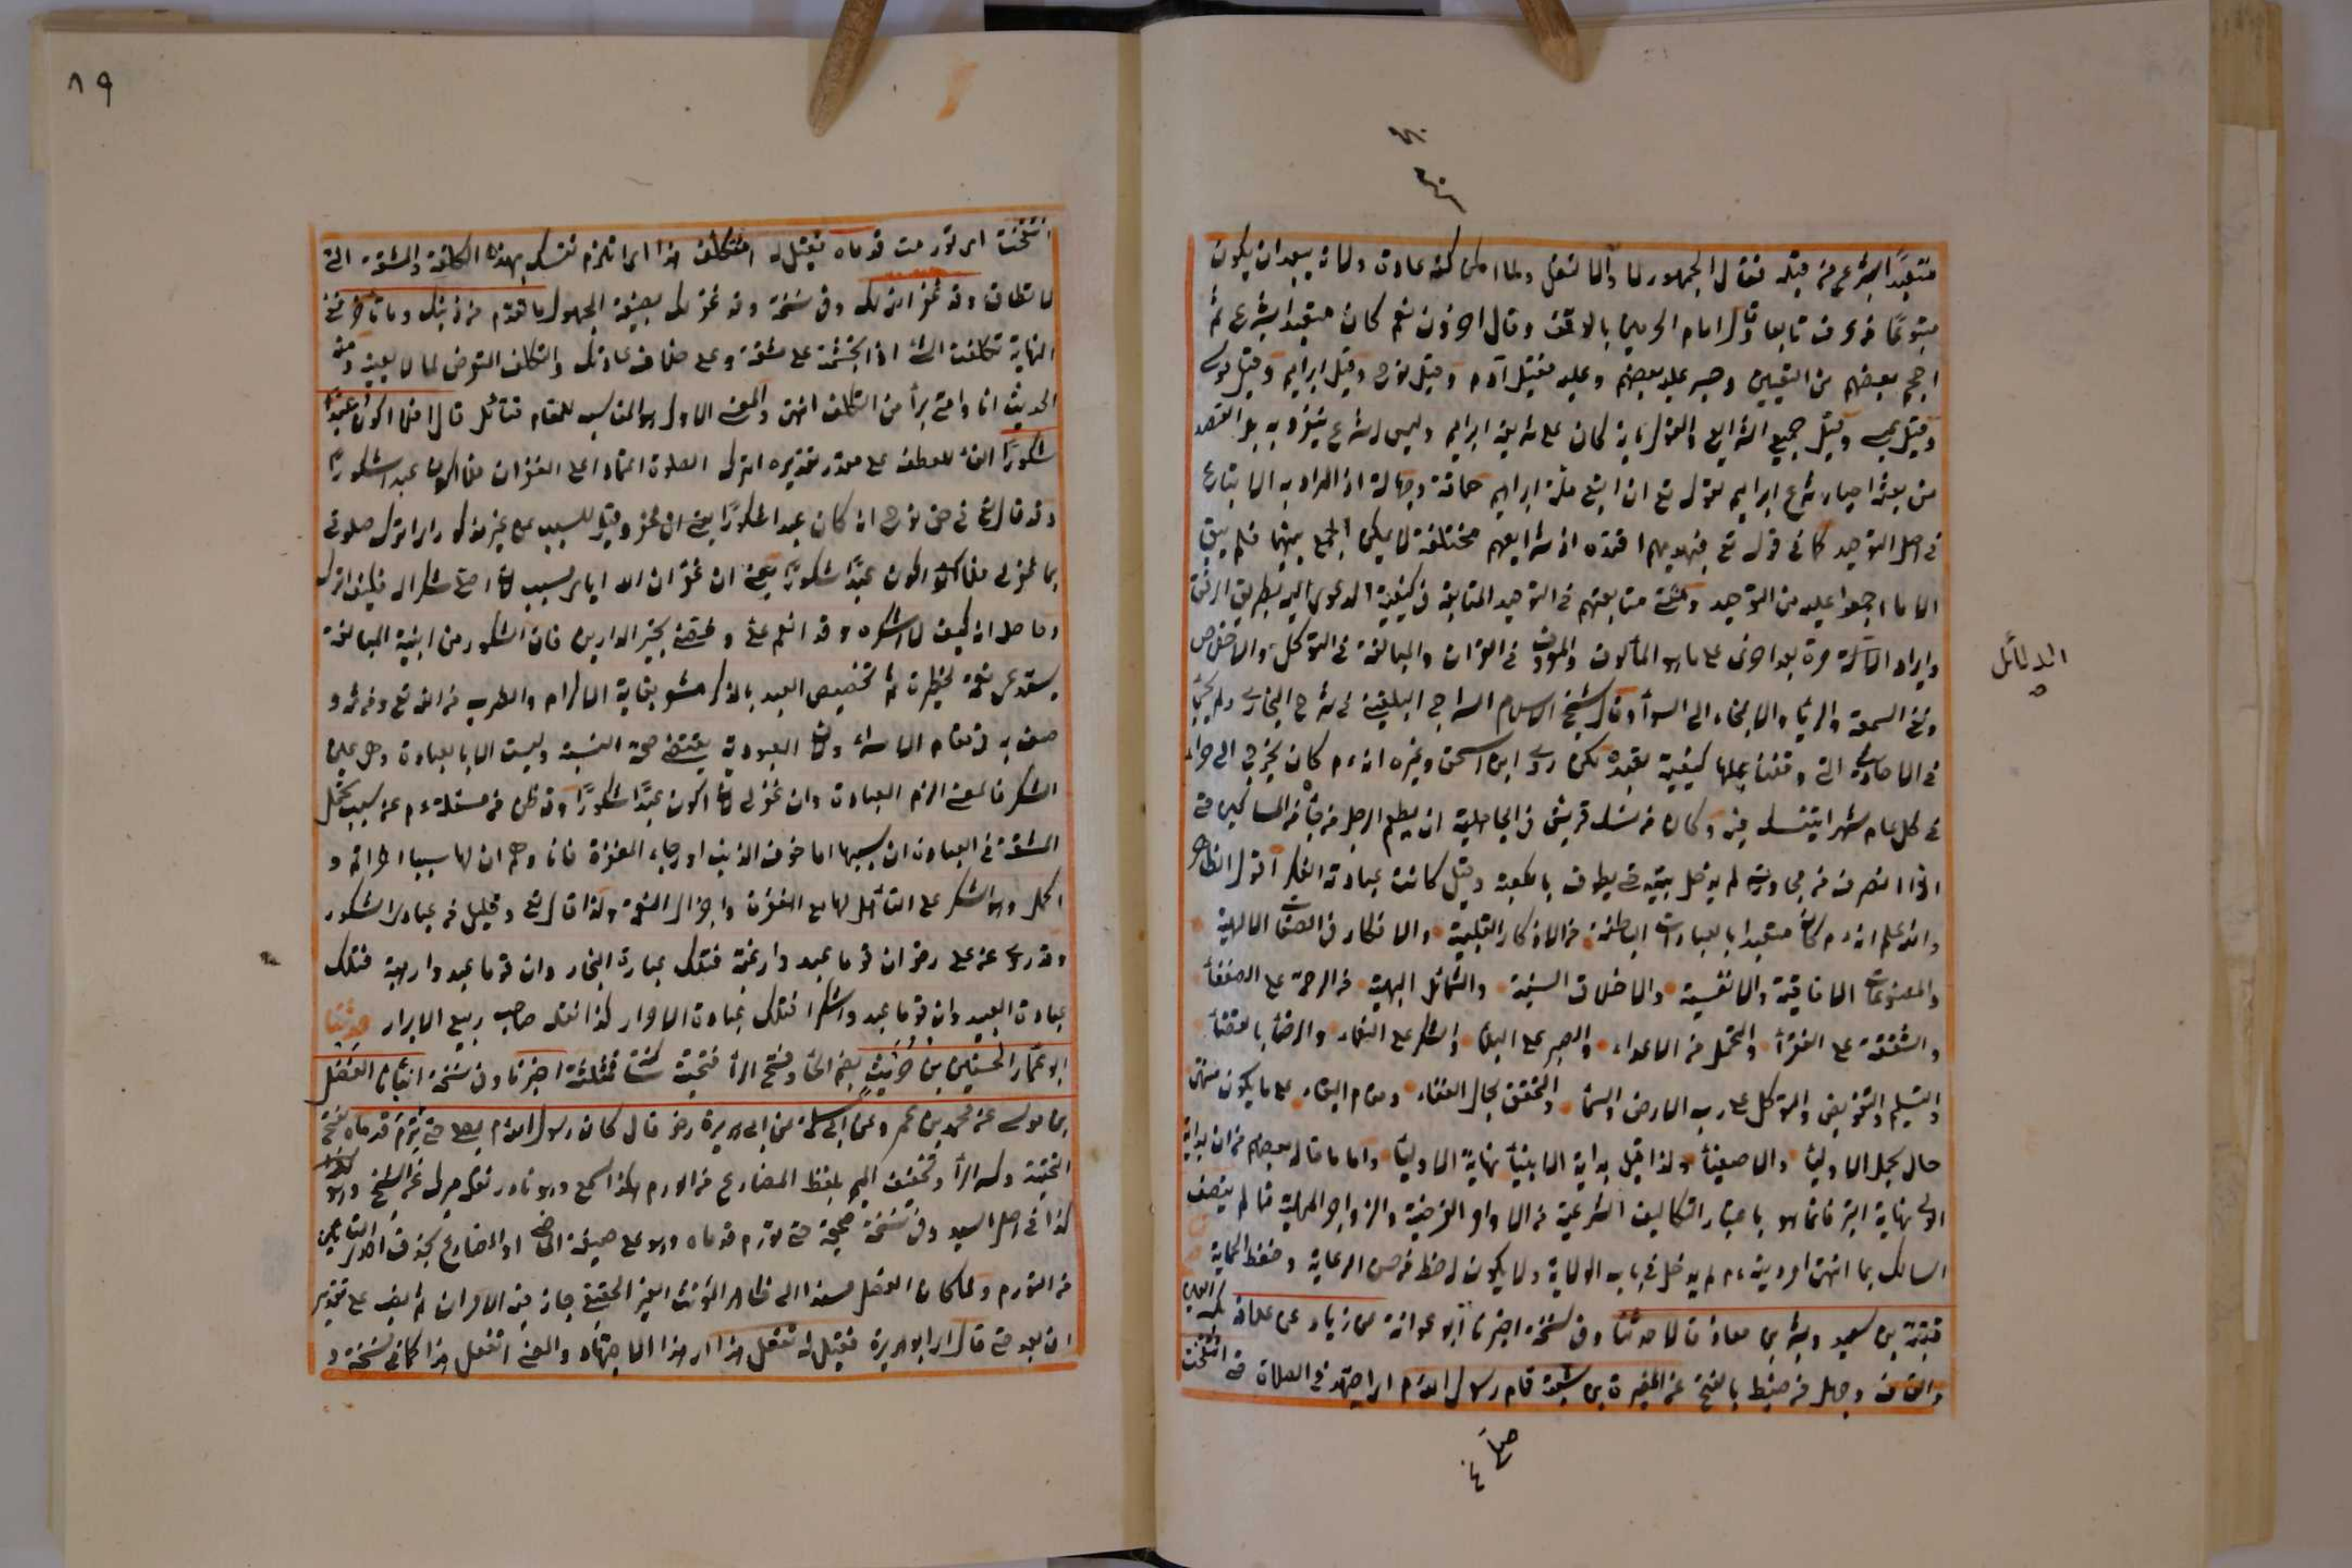 متعبدًا بشرع من قبله فقال الجمهور لا والا لنقل ولما امكن كتمه عادة ولانه يبعد ان يكون
متبوعًا من عرف تابعا وقال امام الحرمين بالوقف وقال اخرون نعم كان متعبدا بشرع ثم
احجم بعضهم من التعيين وجسر عليه بعضهم وعليه فقيل آدم وقيل نوح وقيل ابراهيم وقيل موسى
وقيل عيسى وقيل جميع الشرايع والقول بانه كان على شريعة ابراهيم وليس له شرع ينفرد به بل القصد
من بعثه احياء شرع ابراهيم لقوله تع ان اتبع ملة ابراهيم حماقة وجهالة اذ المراد به الاتباع
في اصل التوحيد كما في قوله تع فبهديهم اقتده اذ شرايعهم مختلفة لا يمكن الجمع بينهما فلم يبق
الا ما اجمعوا عليه من التوحيد ومعنى متابعتهم في التوحيد المتابعة في كيفية الدعوى اليه بطريق الرفق
وايراد الادلة مرة بعد اخرى على ما هو المألوف والمعروف في القران والمبالغة في التوكل والاخلاص
ونفي السمعة والريا والالتجاء الى السوا وقال شيخ الاسلام السراجي البلقيني في شرح البخاري ولم يجئ
في الاحاديث التي وقفنا عليها كيفية تعبده لكن روى ابن اسحق وغيره انه م كان يخرج الى حراء
في كل عام شهرا يتنسك فيه وكان من نسك قريش في الجاهلية ان يطعم الرجل من جاءه من المساكين حتى
اذا انصرف من مجاورته لم يدخل بيته حتى يطوف بالكعبة وقيل كانت عبادته الفكر اقول الظاهر
والله اعلم انه م كان متعبدا بالعبادات الباطنة من الاذكار القلبية والافكار في الصفات الالهية
والمصنوعات الافاقية والانفسية والاخلاق السنية والشمائل البهية من الرحمة على الضعفا
والشفقة على الفقرا والتحمل من الاعداء والصبر على البلاء والشكر على النعماء والرضا بالقضا
والتسليم والتفويض والتوكل على رب الارض والسما والتحقق بحال الفناء ومقام البقاء على ما يكون منتهى
حال كمل الاوليا والاصفيا ولذا قيل بداية الانبيا نهاية الاوليا واما ما قاله بعضهم من ان بداية
الولي نهاية النبي فانما هو باعتبار التكاليف الشرعية من الاوامر الفرضية والزواجر المنهية فما لم يتصف
السالك بما انتهى امر دينه م لم يدخل في باب الولاية ولا يكون له حظ من حسن الرعاية وحفظ الحماية
قتيبة بن سعيد وبشر بن معاذ قالا حدثنا وفي نسخة اخبرنا ابو عوانة عن زياد عن علاقة بكسر العين
والقاف وجهل من ضبط بالفتح عن المغيرة بن شعبة قام رسول الله م اي اجتهد في الصلاة حتى انتفخت
الدلائل
انتفخت اي تورمت قدماه فقيل له اتتكلف هذا اي اتلزم نفسك بهذه الكلفة والمشقة التي
لا تطاق وقد غفر الله لك وفي نسخة وقد غفر لك بصيغة المجهول ما تقدم من ذنبك وما تأخر ففي
النهاية تكلفت الشئ اذا تجشمته على مشقة وعلى خلاف عادتك والتكلف التعرض لما لا يعنيه ومنه
الحديث انا وامتي برأ من التكلف انتهى والمعنى الاول هو المناسب للمقام فتأمل قال افلا اكون عبدًا
شكورًا الفاء للعطف على مقدر تقديره اترك الصلوة اعتمادا على الغفران فلا اكون عبدا شكورًا
وقد قال تع في حق نوح انه كان عبدا شكورًا يعني ان غفر وقيل للسبب عن غير مذكور اي اترك صلوتي
بما غفر لي فلا اكون عبدًا شكورًا يعني ان غفران الله اياي سبب لان اصلي شكرا له فكيف اترك
وحاصله انه كيف لا اشكره وقد انعم علي وخصني بخير الدارين فان الشكور من ابنية المبالغة
يستدعي نعمة خطيرة ثم تخصيص العبد بالذكر مشعر بغاية الاكرام والقرب من الله تع ومن ثم و
صف به في مقام الاسراء ولان العبودية يقتضي صحة النسبة وليست الا بالعبادة وهي عين
الشكر فالمعنى الزم العبادة وان غفر لي لان اكون عبدًا شكورًا وقد ظن من سئله م عن سبب تحمل
المشقة في العبادة ان سببها اما خوف الذنب او رجاء المغفرة فافادهم ان لها سببا اخر اتم و
اكمل وهو الشكر على التأهل لها مع المغفرة واجزال النعمة ولذا قال تع وقليل من عبادي الشكور
وقد روي عن علي رض ان قوما عبدوا رغبة فتلك عبادة التجار وان قوما عبدوا رهبة فتلك
عبادة العبيد وان قوما عبدوا شكرا فتلك عبادة الاحرار كذا نقله صاحب ربيع الابرار حدثنا
ابو عمار الحسين بن حريث بضم الحاء وفتح الراء فتحتية ساكنة فمثلثة اخبرنا وفي نسخة انبأنا الفضل
بن موسى عن محمد بن عمر وعن ابي سلمة عن ابي هريرة رض قال كان رسول الله م يصلي حتى ترم قدماه بفتح
التحتية وكسر الراء وتخفيف الميم بلفظ المضارع من الورم هكذا سمع وهو نادر نقله ميرك عن الشيخ وهو
كذا في اصل السيد وفي نسخة صحيحة حتى تورم قدماه وهو على صيغة الماضي او المضارع بحذف احدى التائين
من التورم ولما كان الفعل مسندا الى ظاهر المؤنث الغير الحقيقي جاز فيه الامران ثم النصب على تقدير
ان بعد حتى قال اي ابو هريرة فقيل له تفعل هذا اي هذا الاجتهاد والمعنى اتفعل هذا كما في نسخة و
٨٩